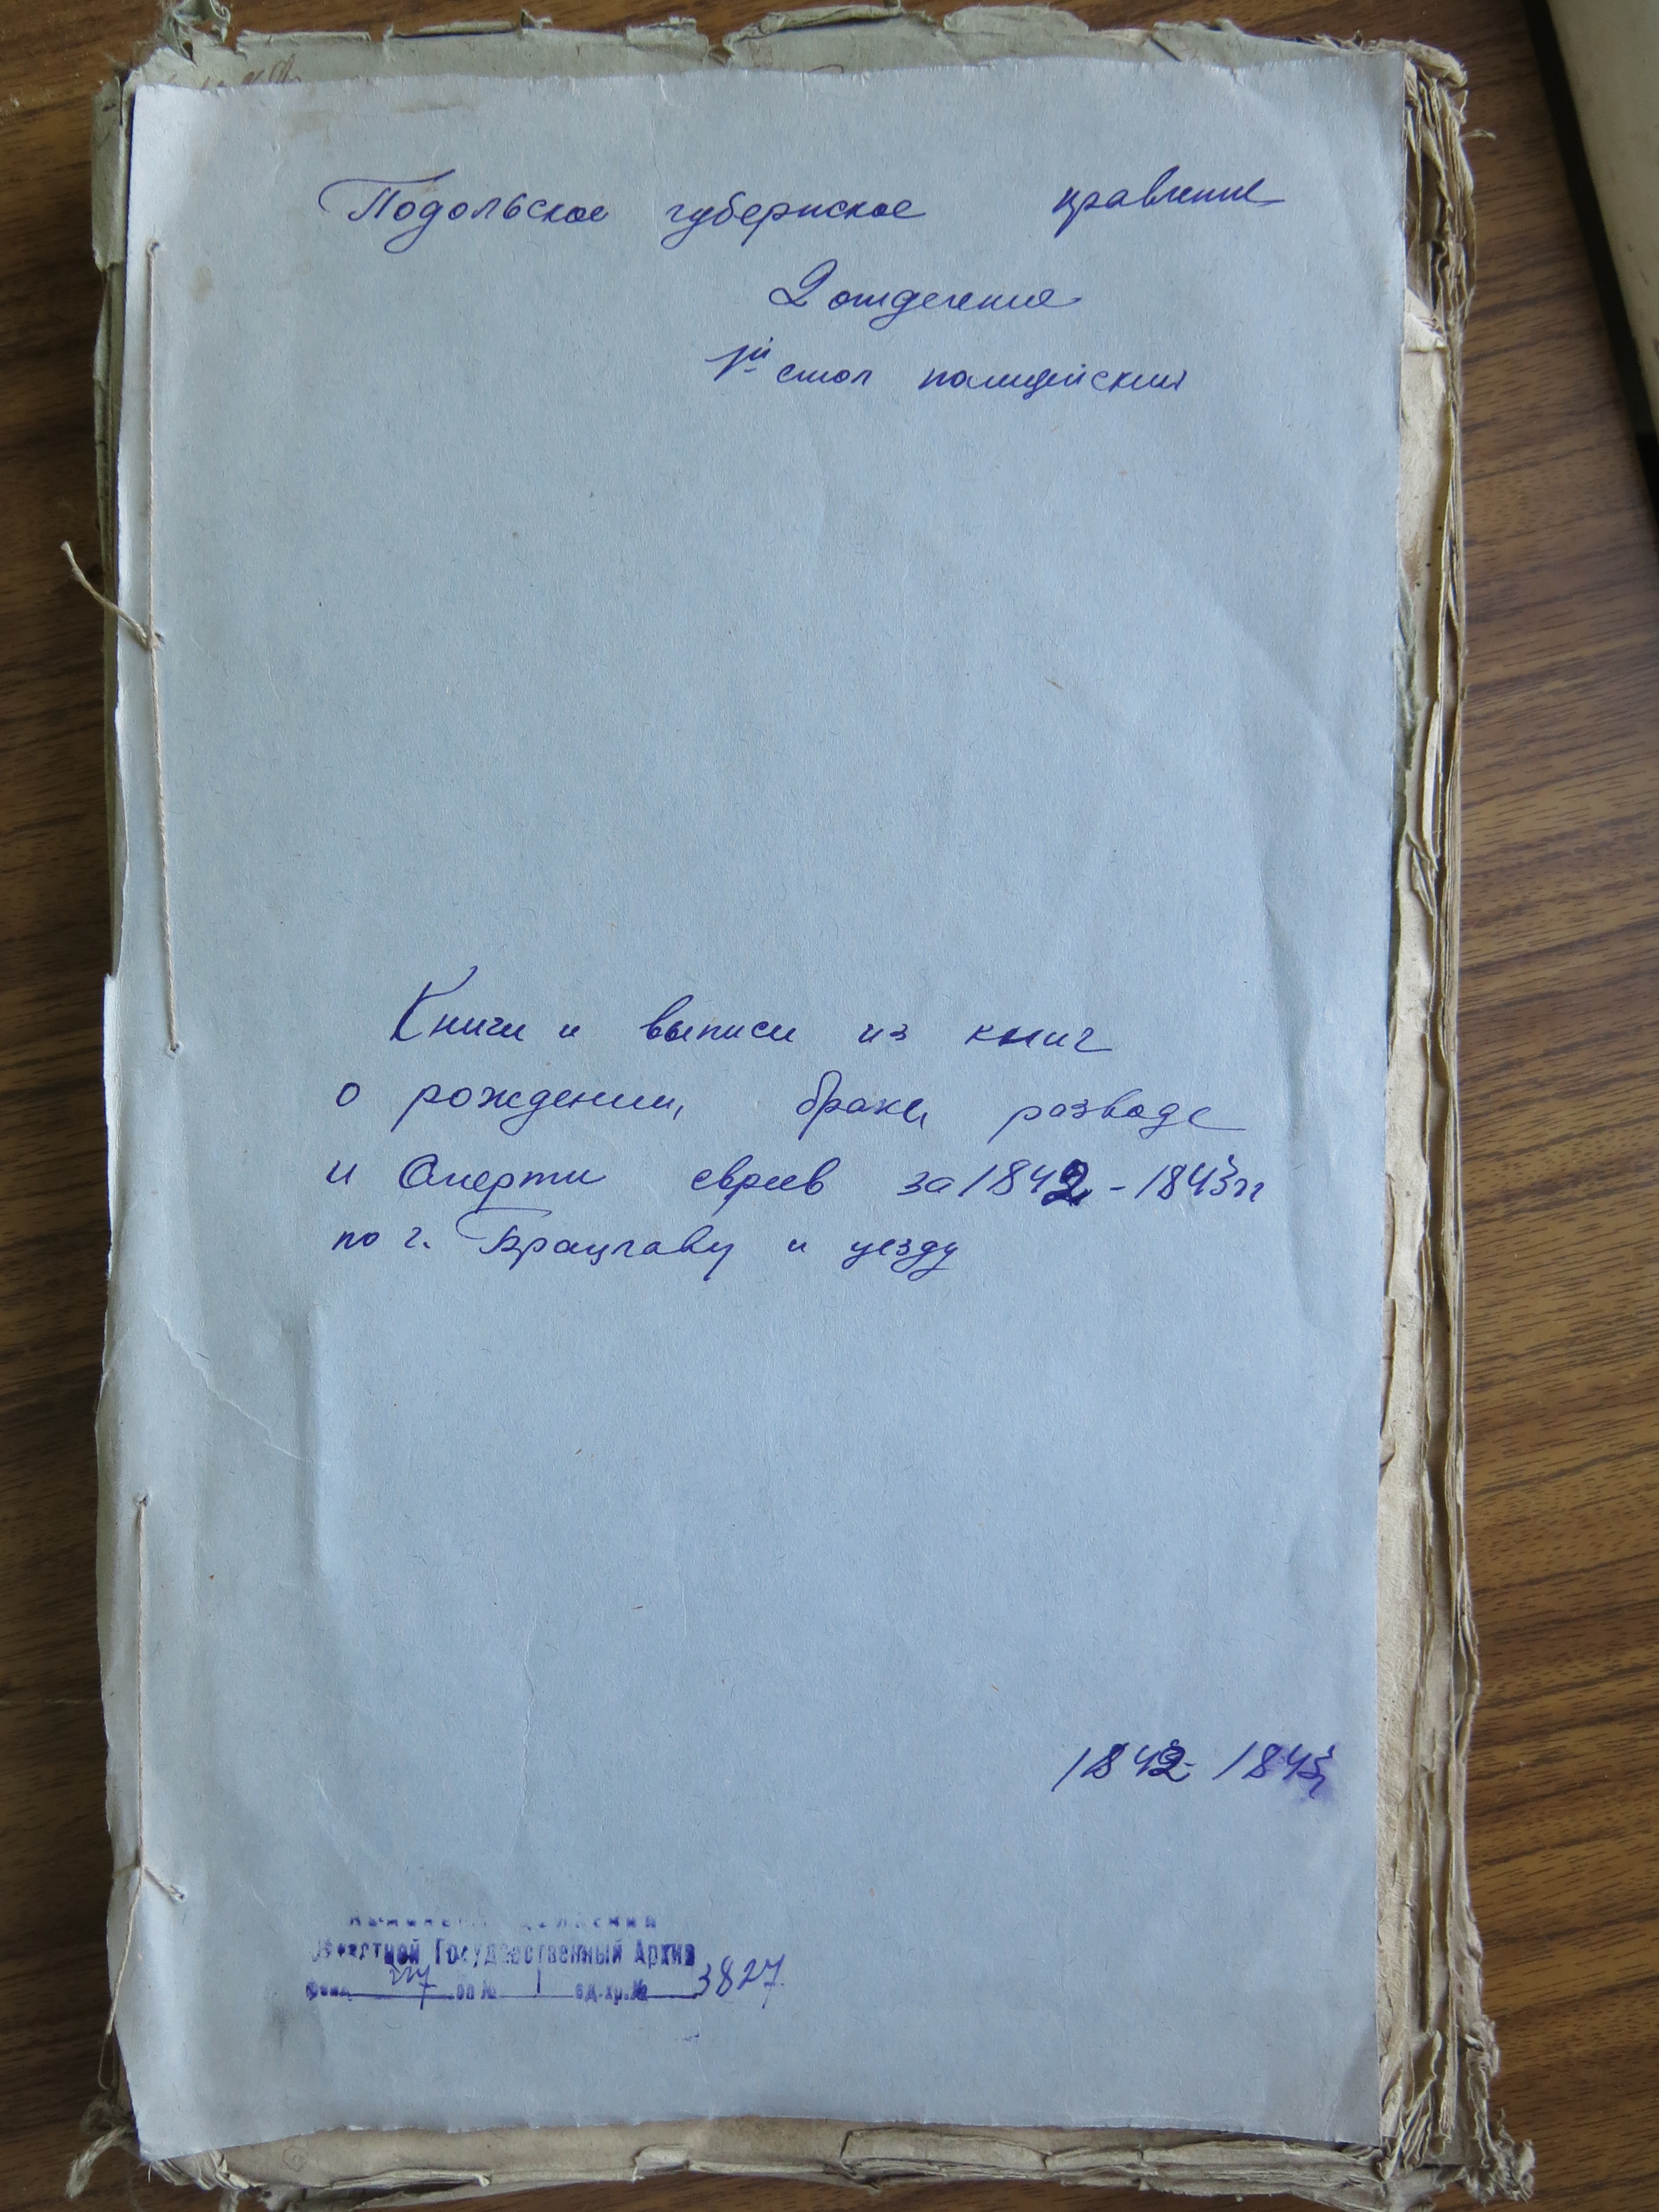 Подольское губернское правление
2 отделение
1й стол полицейский
Книги и выписи из книг
о рождении, браке, разводе
и смерти евреев за 1842-1843 гг
по г. Брацлаву и уезду
1842-1843
Областной Государственный Архив
фонд 227 оп № 1 ед.хр.№ 3827